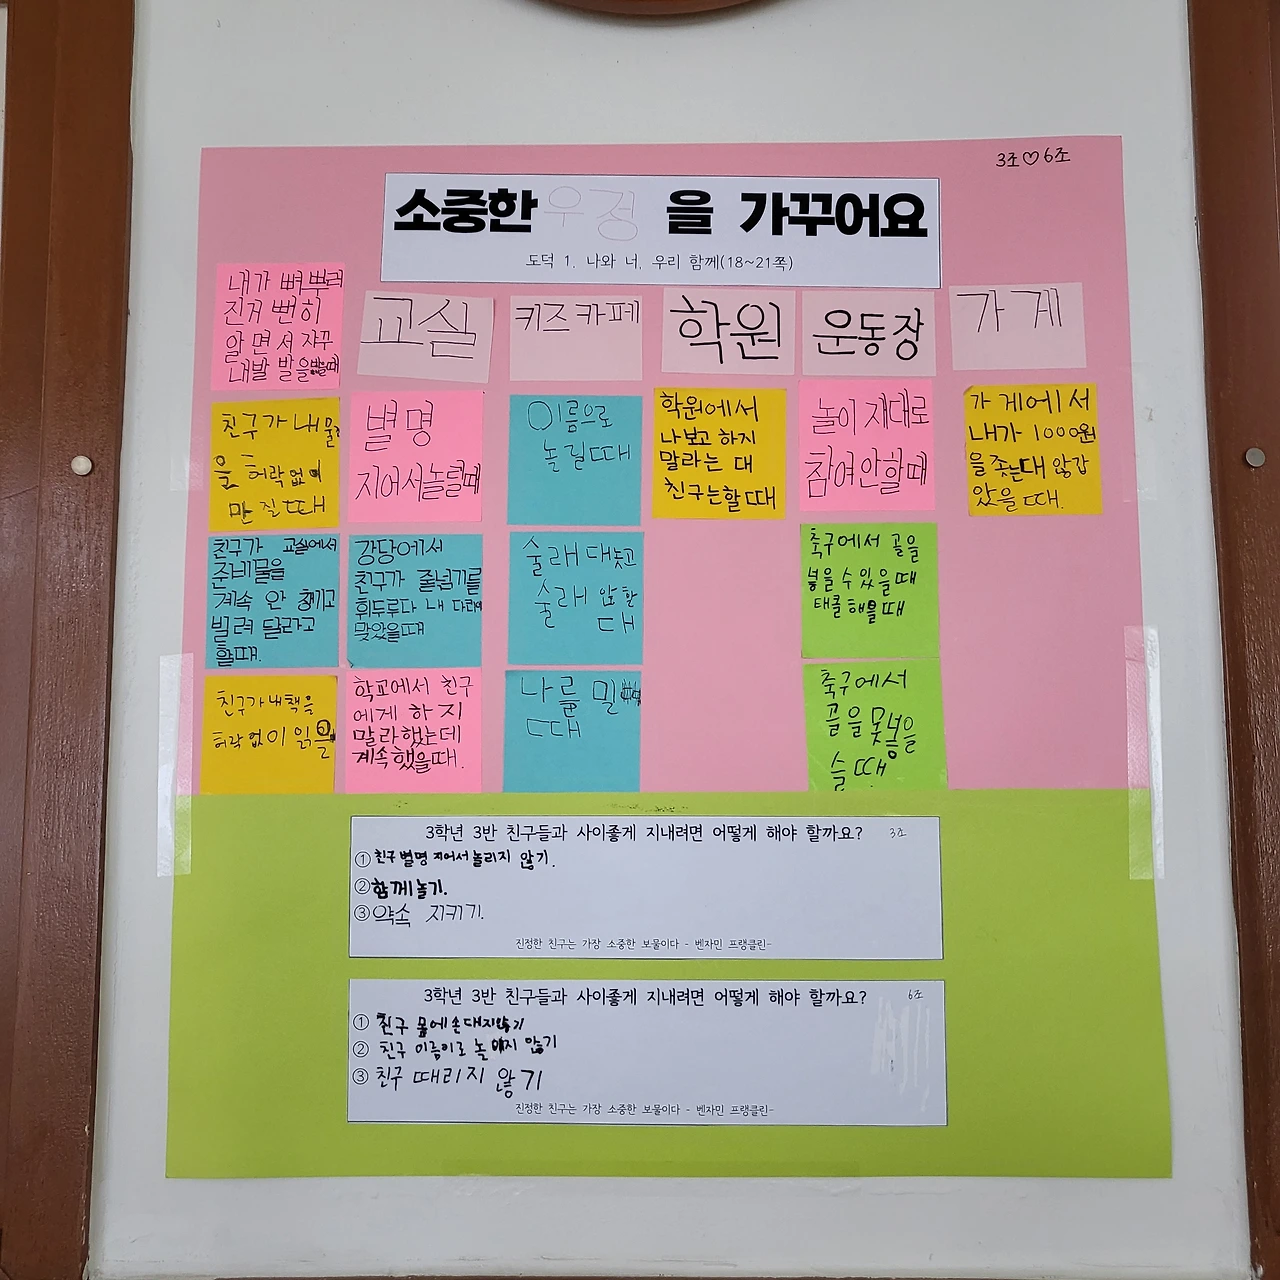 3조♡6조
소중한 우정 을 가꾸어요
도덕 1. 나와 너, 우리 함께(18~21쪽)
내가 뼈뿌러
진거 뻔히
알면서 자꾸
내발 발을 밟을때
교실
키즈카페
학원
운동장
가게
친구가 내 물건
을 허락없이
만질때
별명
지어서놀릴때
이름으로
놀릴때
학원에서
나보고 하지
말라는 대
친구는할때
놀이 재대로
참여안할때
가게에서
내가 1000원
을 줏는대 않갑
았을때.
친구가 교실에서
준비물을
계속 안 챙기고
빌려달라고
할때.
강당에서
친구가 줄넘기를
휘두루다 내 다리에
맞았을때
술래 대놓고
술래 않할
대
축구에서 골을
넣을수있을때
태클해를때
친구가내책을
허락없이 읽을
학교에서 친구
에게 하지
말라했는데
계속했을때.
나를 밀
때
축구에서
골을 못넣을
슬때
3학년 3반 친구들과 사이좋게 지내려면 어떻게 해야 할까요? 3조
① 친구 별명 지어서 놀리지 않기.
② 함께놀기.
③ 약속 지키기.
진정한 친구는 가장 소중한 보물이다 - 벤자민 프랭클린-
3학년 3반 친구들과 사이좋게 지내려면 어떻게 해야 할까요? 6조
① 친구 몸에 손대지않기
② 친구 이름이로 놀리지 않기
③ 친구 때리지 않기
진정한 친구는 가장 소중한 보물이다 - 벤자민 프랭클린-